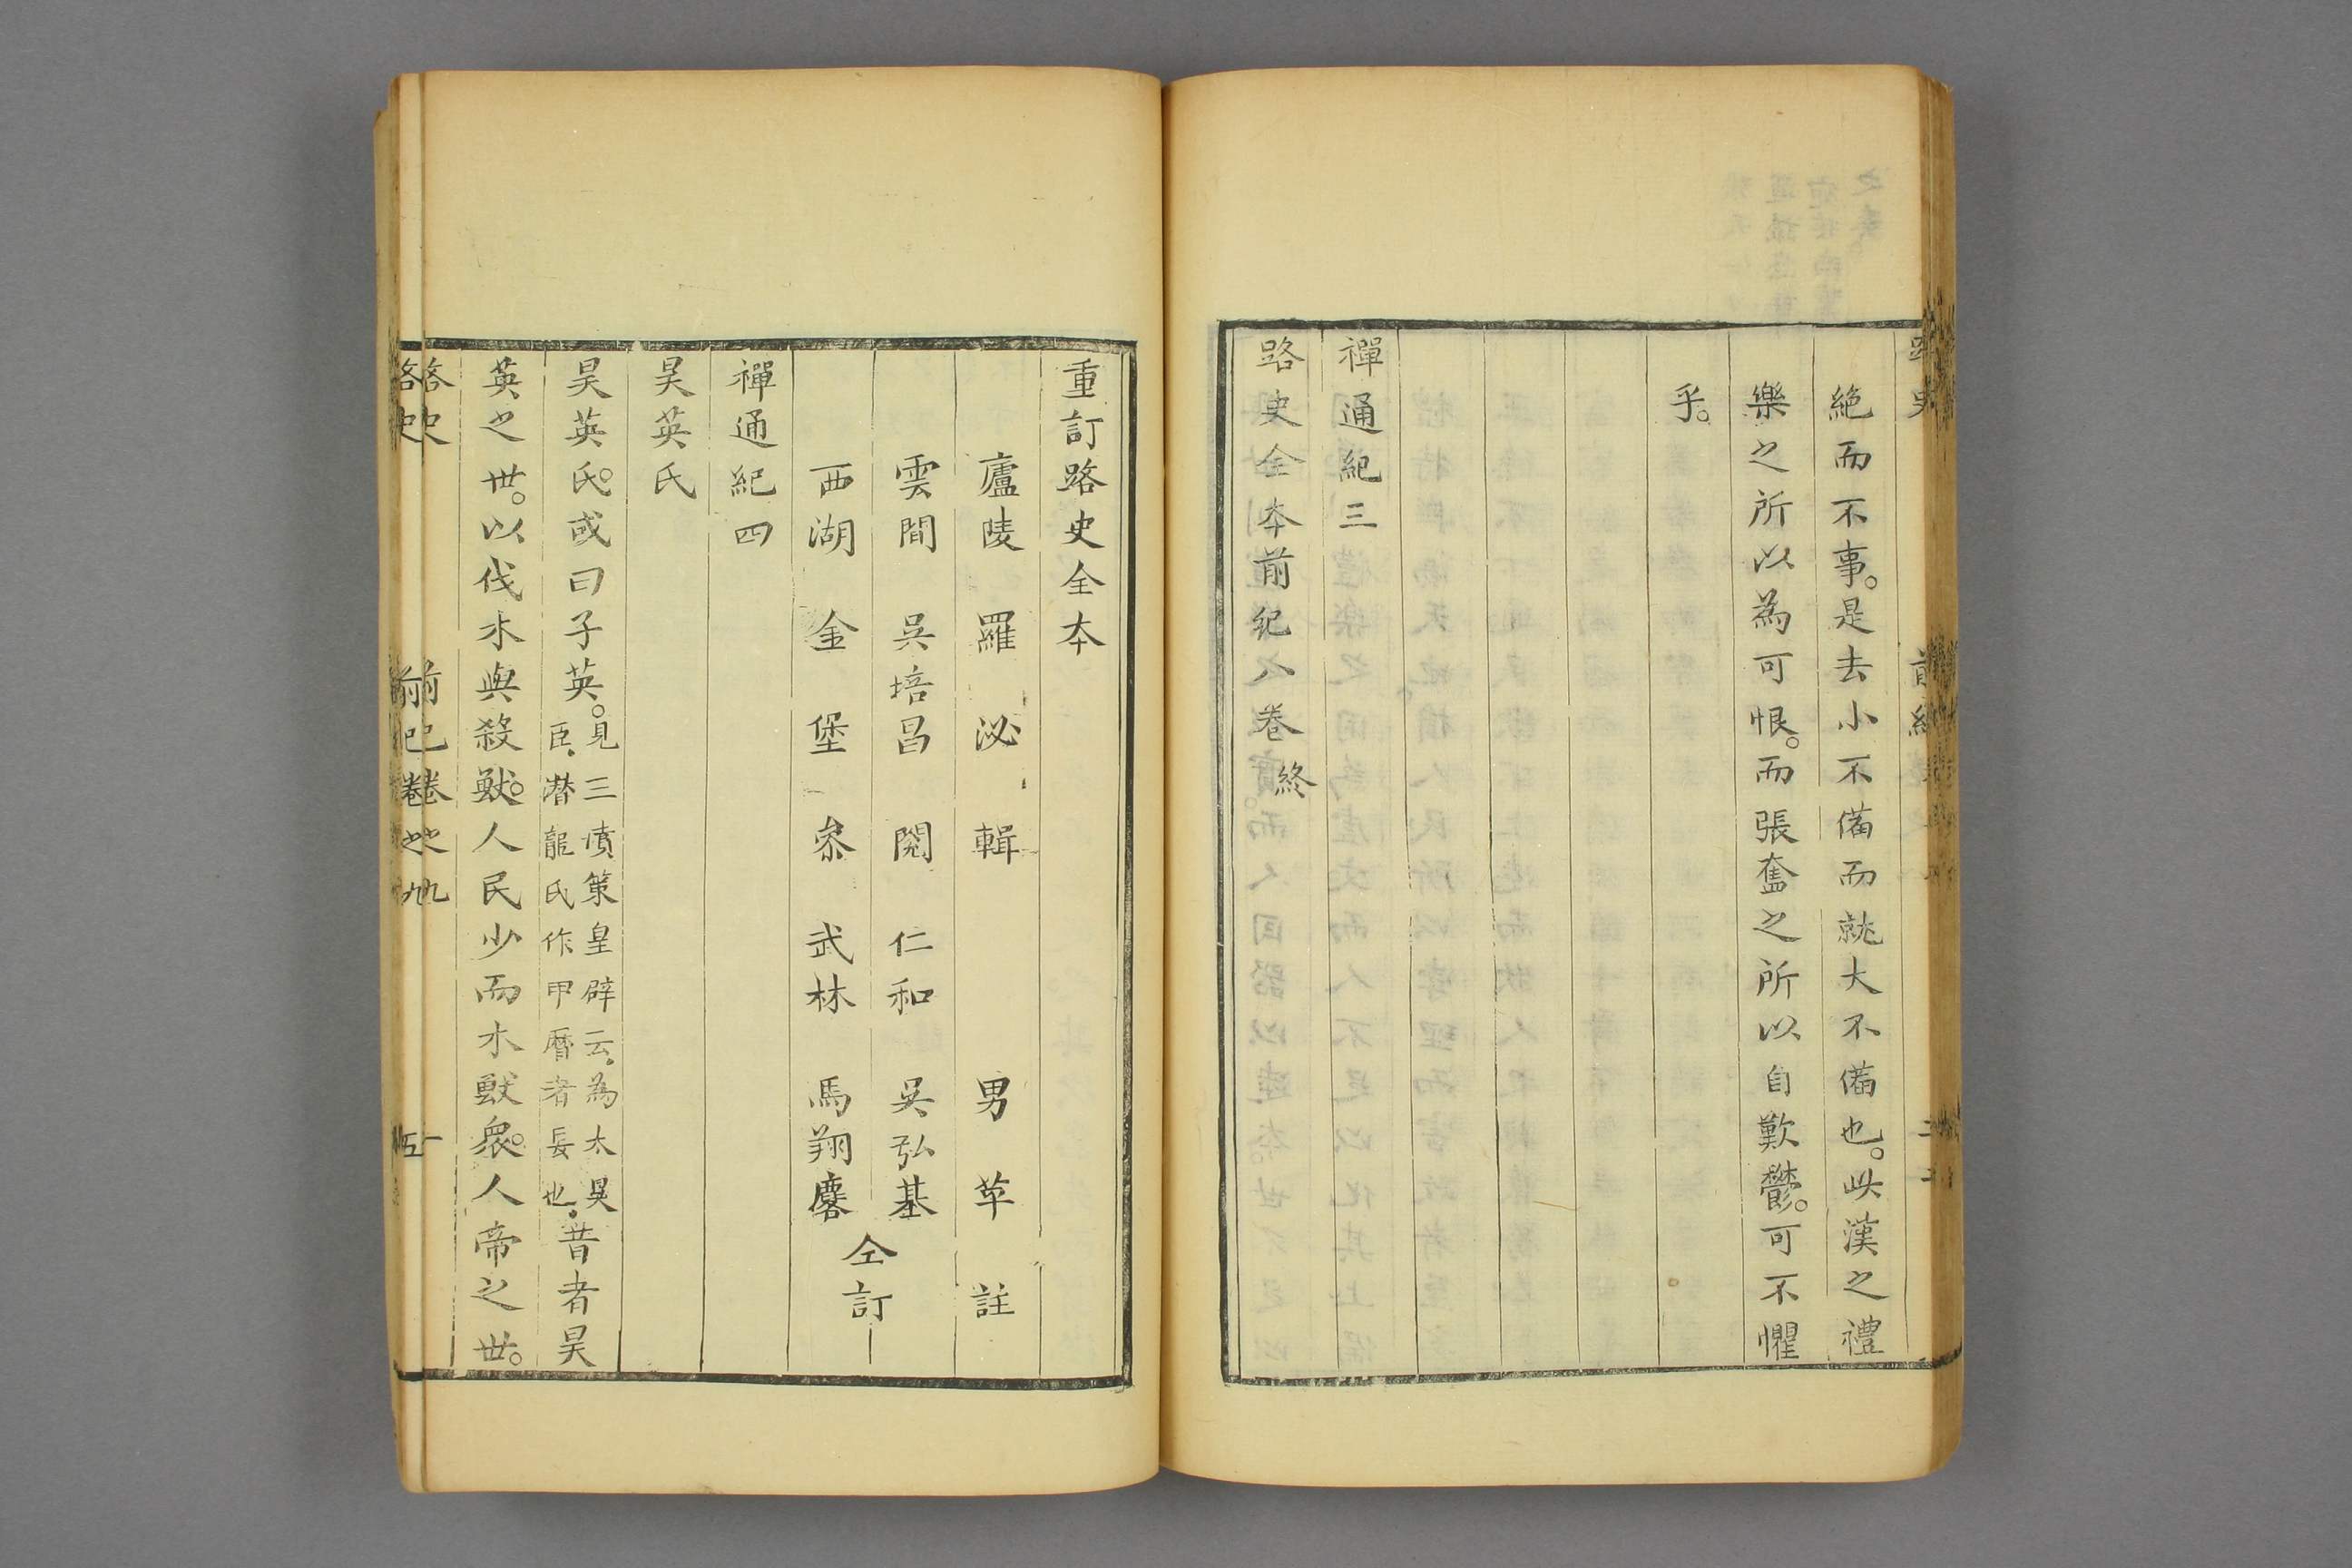 絶而不事。是去小不備而就大不備也。此漢之禮
樂之所以為可恨。而張奮之所以自歎鬱。可不懼
乎。
禪通紀三
路史全本前紀八卷終
重訂路史全本
廬陵 羅泌輯 男苹註
雲間 吳培昌閱 仁和 吳弘基
西湖 金堡叅 武林 馬翔麐
仝訂
禪通紀四
昊英氏
昊英氏。或曰子英。見三墳策皇辟云。為太昊
臣。潜龍氏作甲曆者長也。昔者昊
英之世。以伐木與殺獸。人民少而木獸衆。人帝之世。
路史 前紀卷之九 一